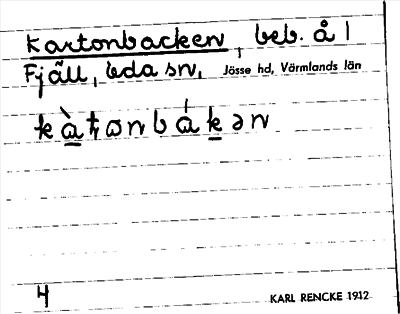 Kartonbacken, beb. å 1
Fjäll, Eda sn, Jösse hd, Värmlands län
k<u>à</u>ꞧɷnbá<u>k</u>ən
4
KARL RENCKE 1912